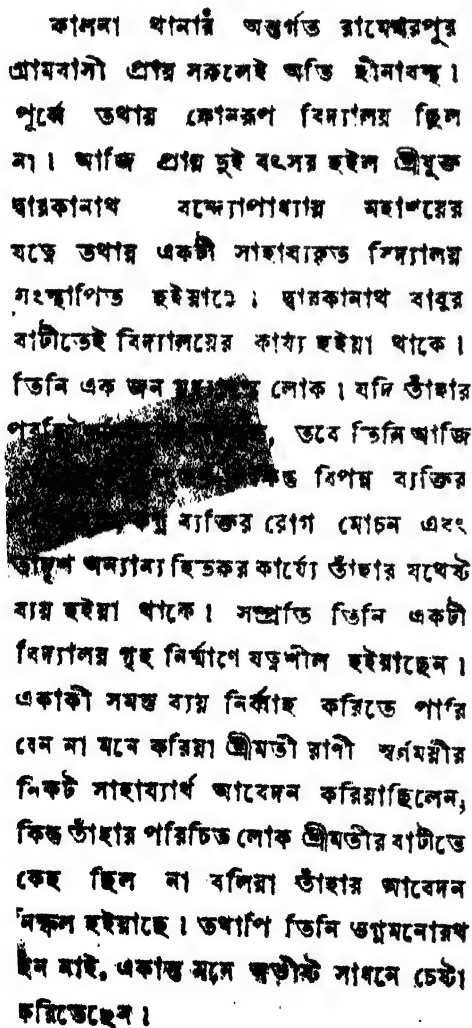 কালনা থানার অন্তর্গত রামেশ্বরপুর
গ্রামবাসী প্রায় সকলেই অতি হীনাবস্থ।
পূর্ব্বে তথায় কোনরূপ বিদ্যালয় ছিল
না। আজি প্রায় দুই বৎসর হইল শ্রীযুক্ত
দ্বারকানাথ বন্দ্যোপাধ্যায় মহাশয়ের
যত্নে তথায় একটী সাহায্যকৃত বিদ্যালয়
সংস্থাপিত হইয়াছে। দ্বারকানাথ বাবুর
বাটীতেই বিদ্যালয়ের কার্য্য হইয়া থাকে।
তিনি এক জন লোক। যদি তাঁহার
তবে তিনি আজি
বিপন্ন ব্যক্তির
ব্যক্তির রোগ মোচন এবং
তাদৃশ অন্যান্য হিতকর কার্য্যে তাঁহার যথেষ্ট
ব্যয় হইয়া থাকে। সম্প্রতি তিনি একটী
বিদ্যালয় গৃহ নির্ম্মাণে যত্নশীল হইয়াছেন।
একাকী সমস্ত ব্যয় নির্ব্বাহ করিতে পারি
বেন না মনে করিয়া শ্রীমতী রাণী স্বর্ণময়ীর
নিকট সাহায্যার্থ আবেদন করিয়াছিলেন,
কিন্তু তাঁহার পরিচিত লোক শ্রীমতীর বাটীতে
কেহ ছিল না বলিয়া তাঁহার আবেদন
নিষ্ফল হইয়াছে। তথাপি তিনি ভগ্নমনোরথ
হন নাই, একান্ত মনে অভীষ্ট সাধনে চেষ্টা
করিতেছেন।